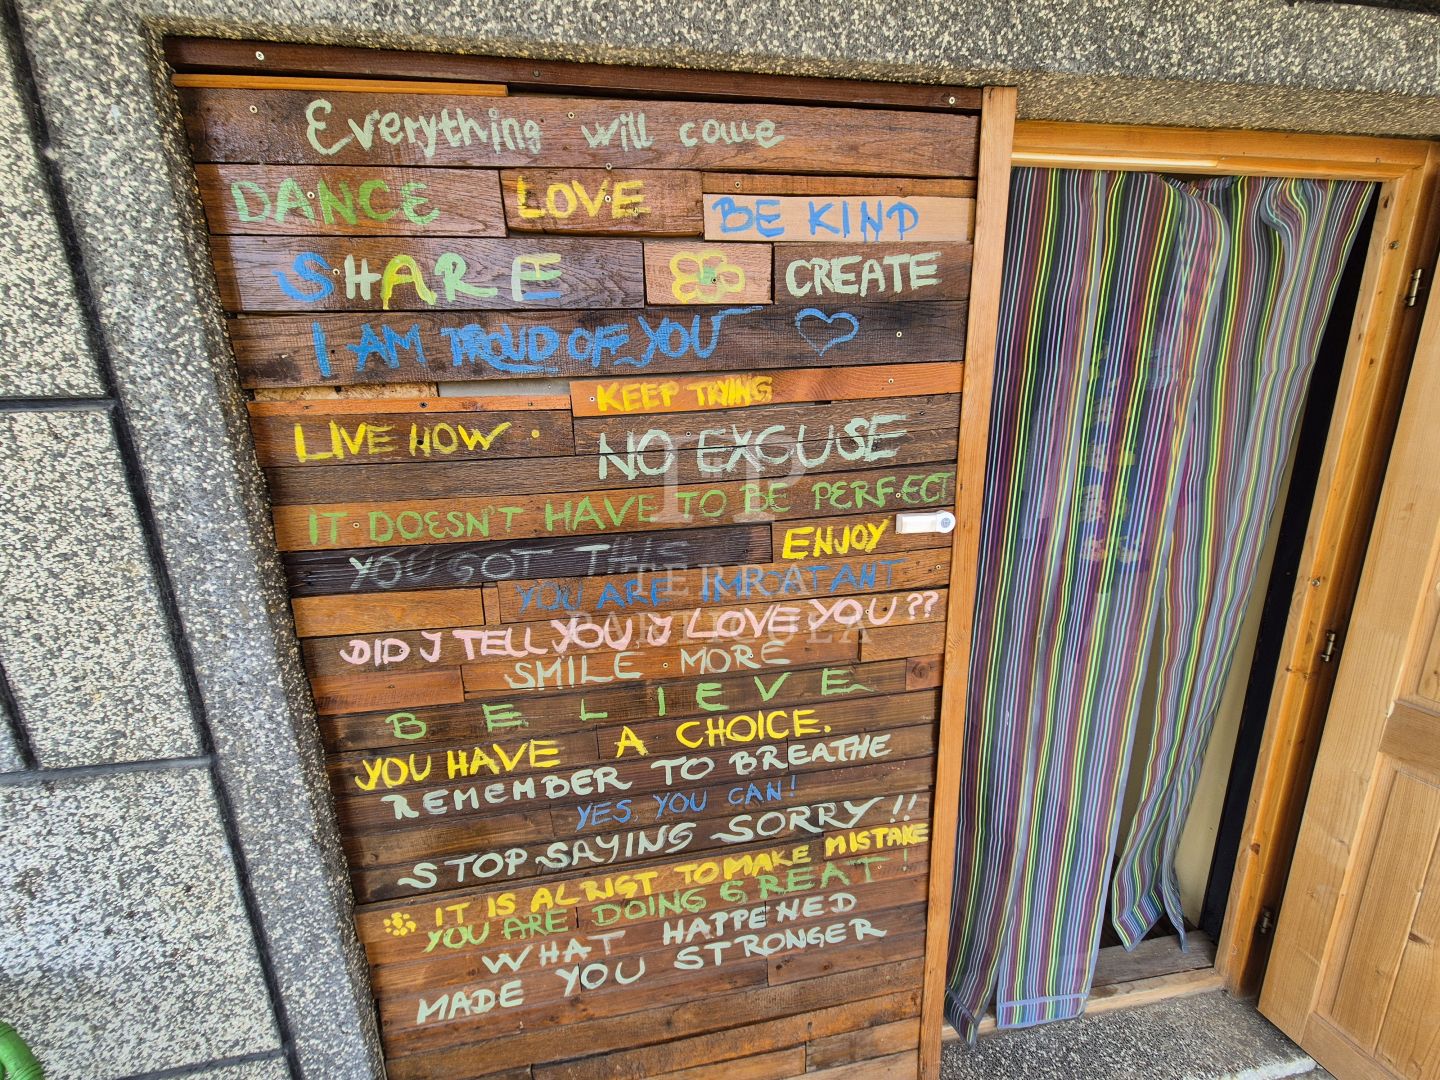 Everything will come
DANCE LOVE BE KIND
SHARE CREATE
I AM PROUD OF YOU
KEEP TRYING
LIVE NOW.
NO EXCUSE
IT DOESN'T HAVE TO BE PERFECT
YOU GOT THIS
ENJOY
YOU ARE IMPORATANT
TP
TERRA
PARTICULA
DID I TELL YOU I LOVE YOU??
SMILE MORE
BELIEVE
YOU HAVE A CHOICE.
REMEMBER TO BREATHE
YES, YOU CAN!
STOP SAYING SORRY!!
IT IS ALRIGT TO MAKE MISTAKE
YOU ARE DOING GREAT!
WHAT HAPPENED
MADE YOU STRONGER